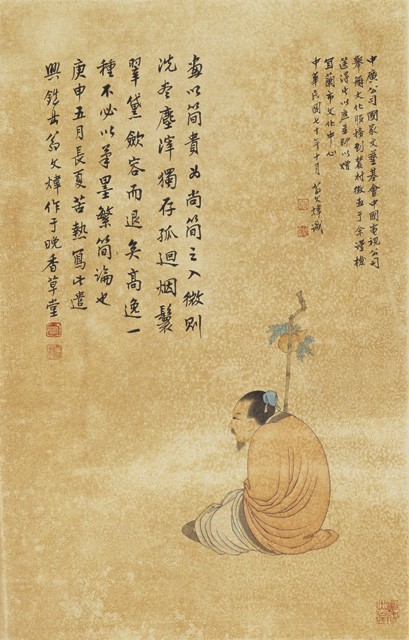 中廣公司國家文藝基會中國電視公司
舉辦文化服務到農村徵畫于余遂檢
送得此以應並即以贈
宜蘭市文化中心
中華民國七十年十月 翁文煒識
畫以簡貴為尚簡之入微則
洗盡塵滓獨存孤迥烟鬟
翠黛斂容而退矣高逸一
種不必以筆墨繁簡論也
庚申五月長夏苦熱寫此遣
興 翁文煒作于晚香草堂